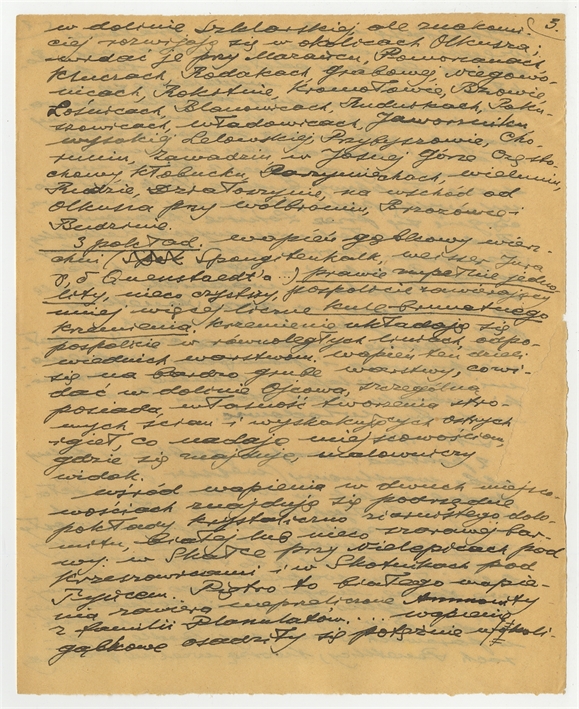 3.
w dolinie Szklarskiej, ale znakomi-
ciej rozwijają się w okolicach Olkusza;
widać je przy Mazańcu, Pomorzanach,
Kluczach, Rodakach, Grabowej, Niegowo-
nicach, Rokitnie, Kromołowie, Bzowie
Łośnicach, Blanowicach, Rudnikach, Paku-
szowicach, Władowicach, Jaworniku,
wysokiej Lelowskiej, Przybyszowie, Cho-
roniu, Zawadziu, w Jasnej Górze Często-
chowy, Kłobucku, wieluniu,
Rudzie, Działoszynie, na wschód od
Olkusza przy Wolbromiu, Brzozówce i
Budzinie.
3 pokład. wapień gąbkowy wierz-
chni ( Spongitenkalk, weisser Jura
γ, δ Quenstaedt'a...) prawie zupełnie jedno-
lity, nieco czystszy, pospolicie zawierający
mniej więcej liczne kule brunatnego
krzemienia. krzemienie układają się
pospolicie w równoległych liniach, odpo-
wiednich warstwom. wapień ten dzieli
się na bardzo grube warstwy, co wi-
dać w dolinie Ojcowa, szczególną
posiada, własność tworzenia stro-
mych ścian i wyskakujących ostrych
igieł, co nadaje miejscowościom,
gdzie się znajduje, malowniczy
widok.
wśród wapienia w dwuch miejsco-
wościach znajdują się podrzędnie
pokłady krystaliczno ziarnistego dolo-
mitu, białej lub nieco szarawej bar-
wy: w Skałce przy Nielepicach pod
Krzeszowicami i w Skotnikach pod
Tyńcem. Piętro to białego wapie-
nia zawiera niezliczone Ammonity
z familii Planulatów.... wapienie
gąbkowe osadziły się potężnie w okoli-